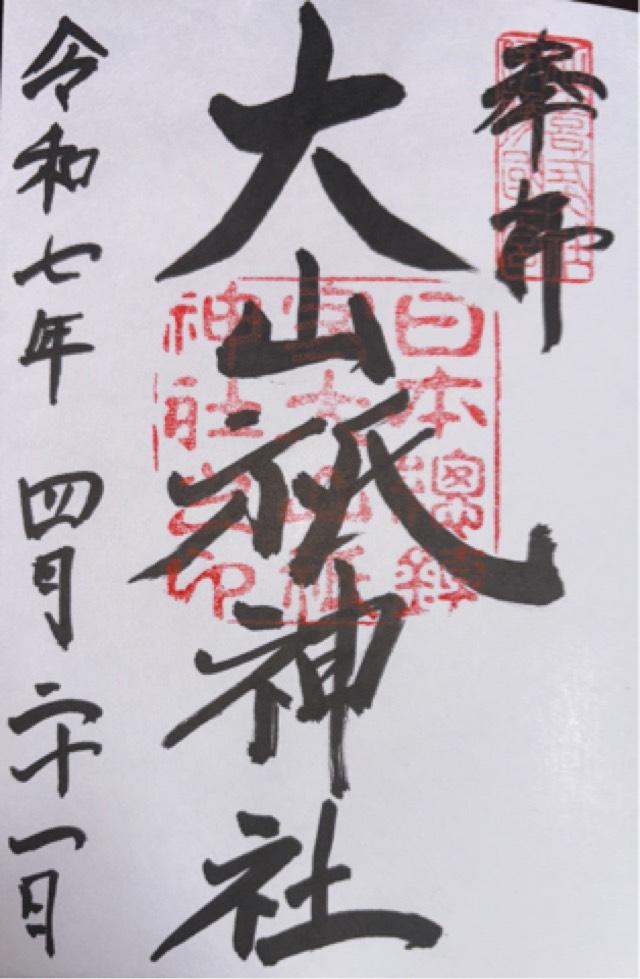 奉拝
日本總鎮
守大山祇
神社之印
大山祇神社
令和七年 四月二十一日